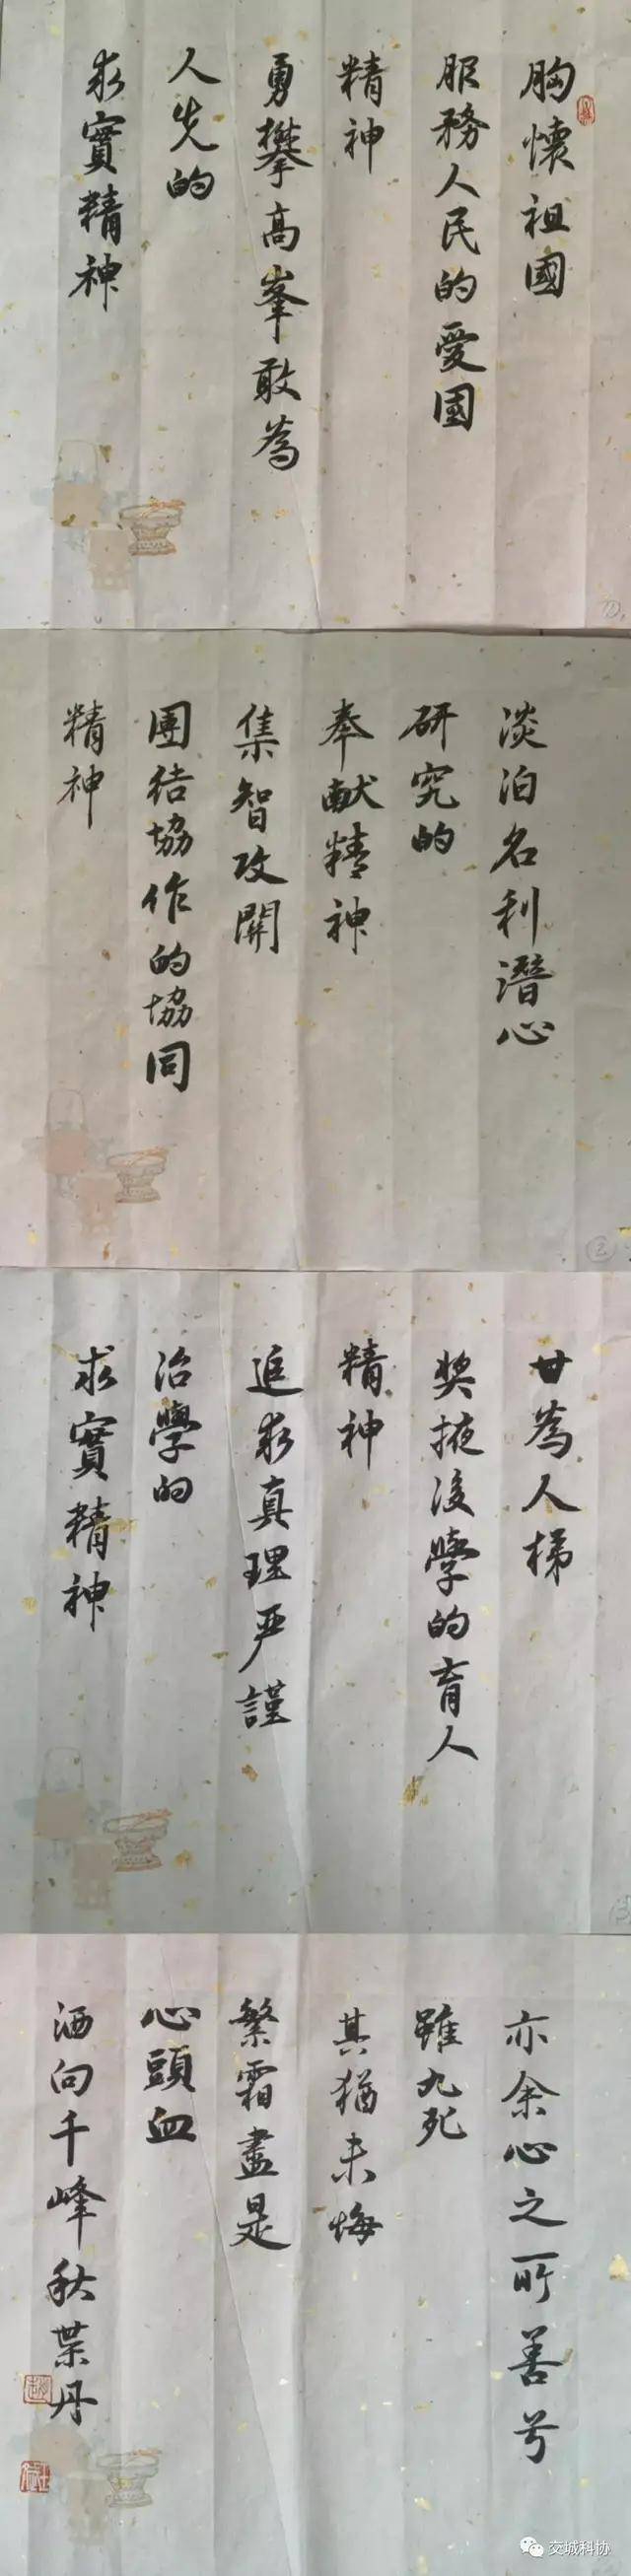 胸懷祖國
服務人民的愛國
精神
勇攀高峯敢為
人先的
求實精神
淡泊名利潛心
研究的
奉献精神
集智攻關
團结協作的協同
精神
甘為人梯
奖掖後學的育人
精神
追求真理严謹
治學的
求實精神
亦余心之所善兮
雖九死
其猶未悔
繁霜盡是
心頭血
洒向千峰秋葉丹
交城科协